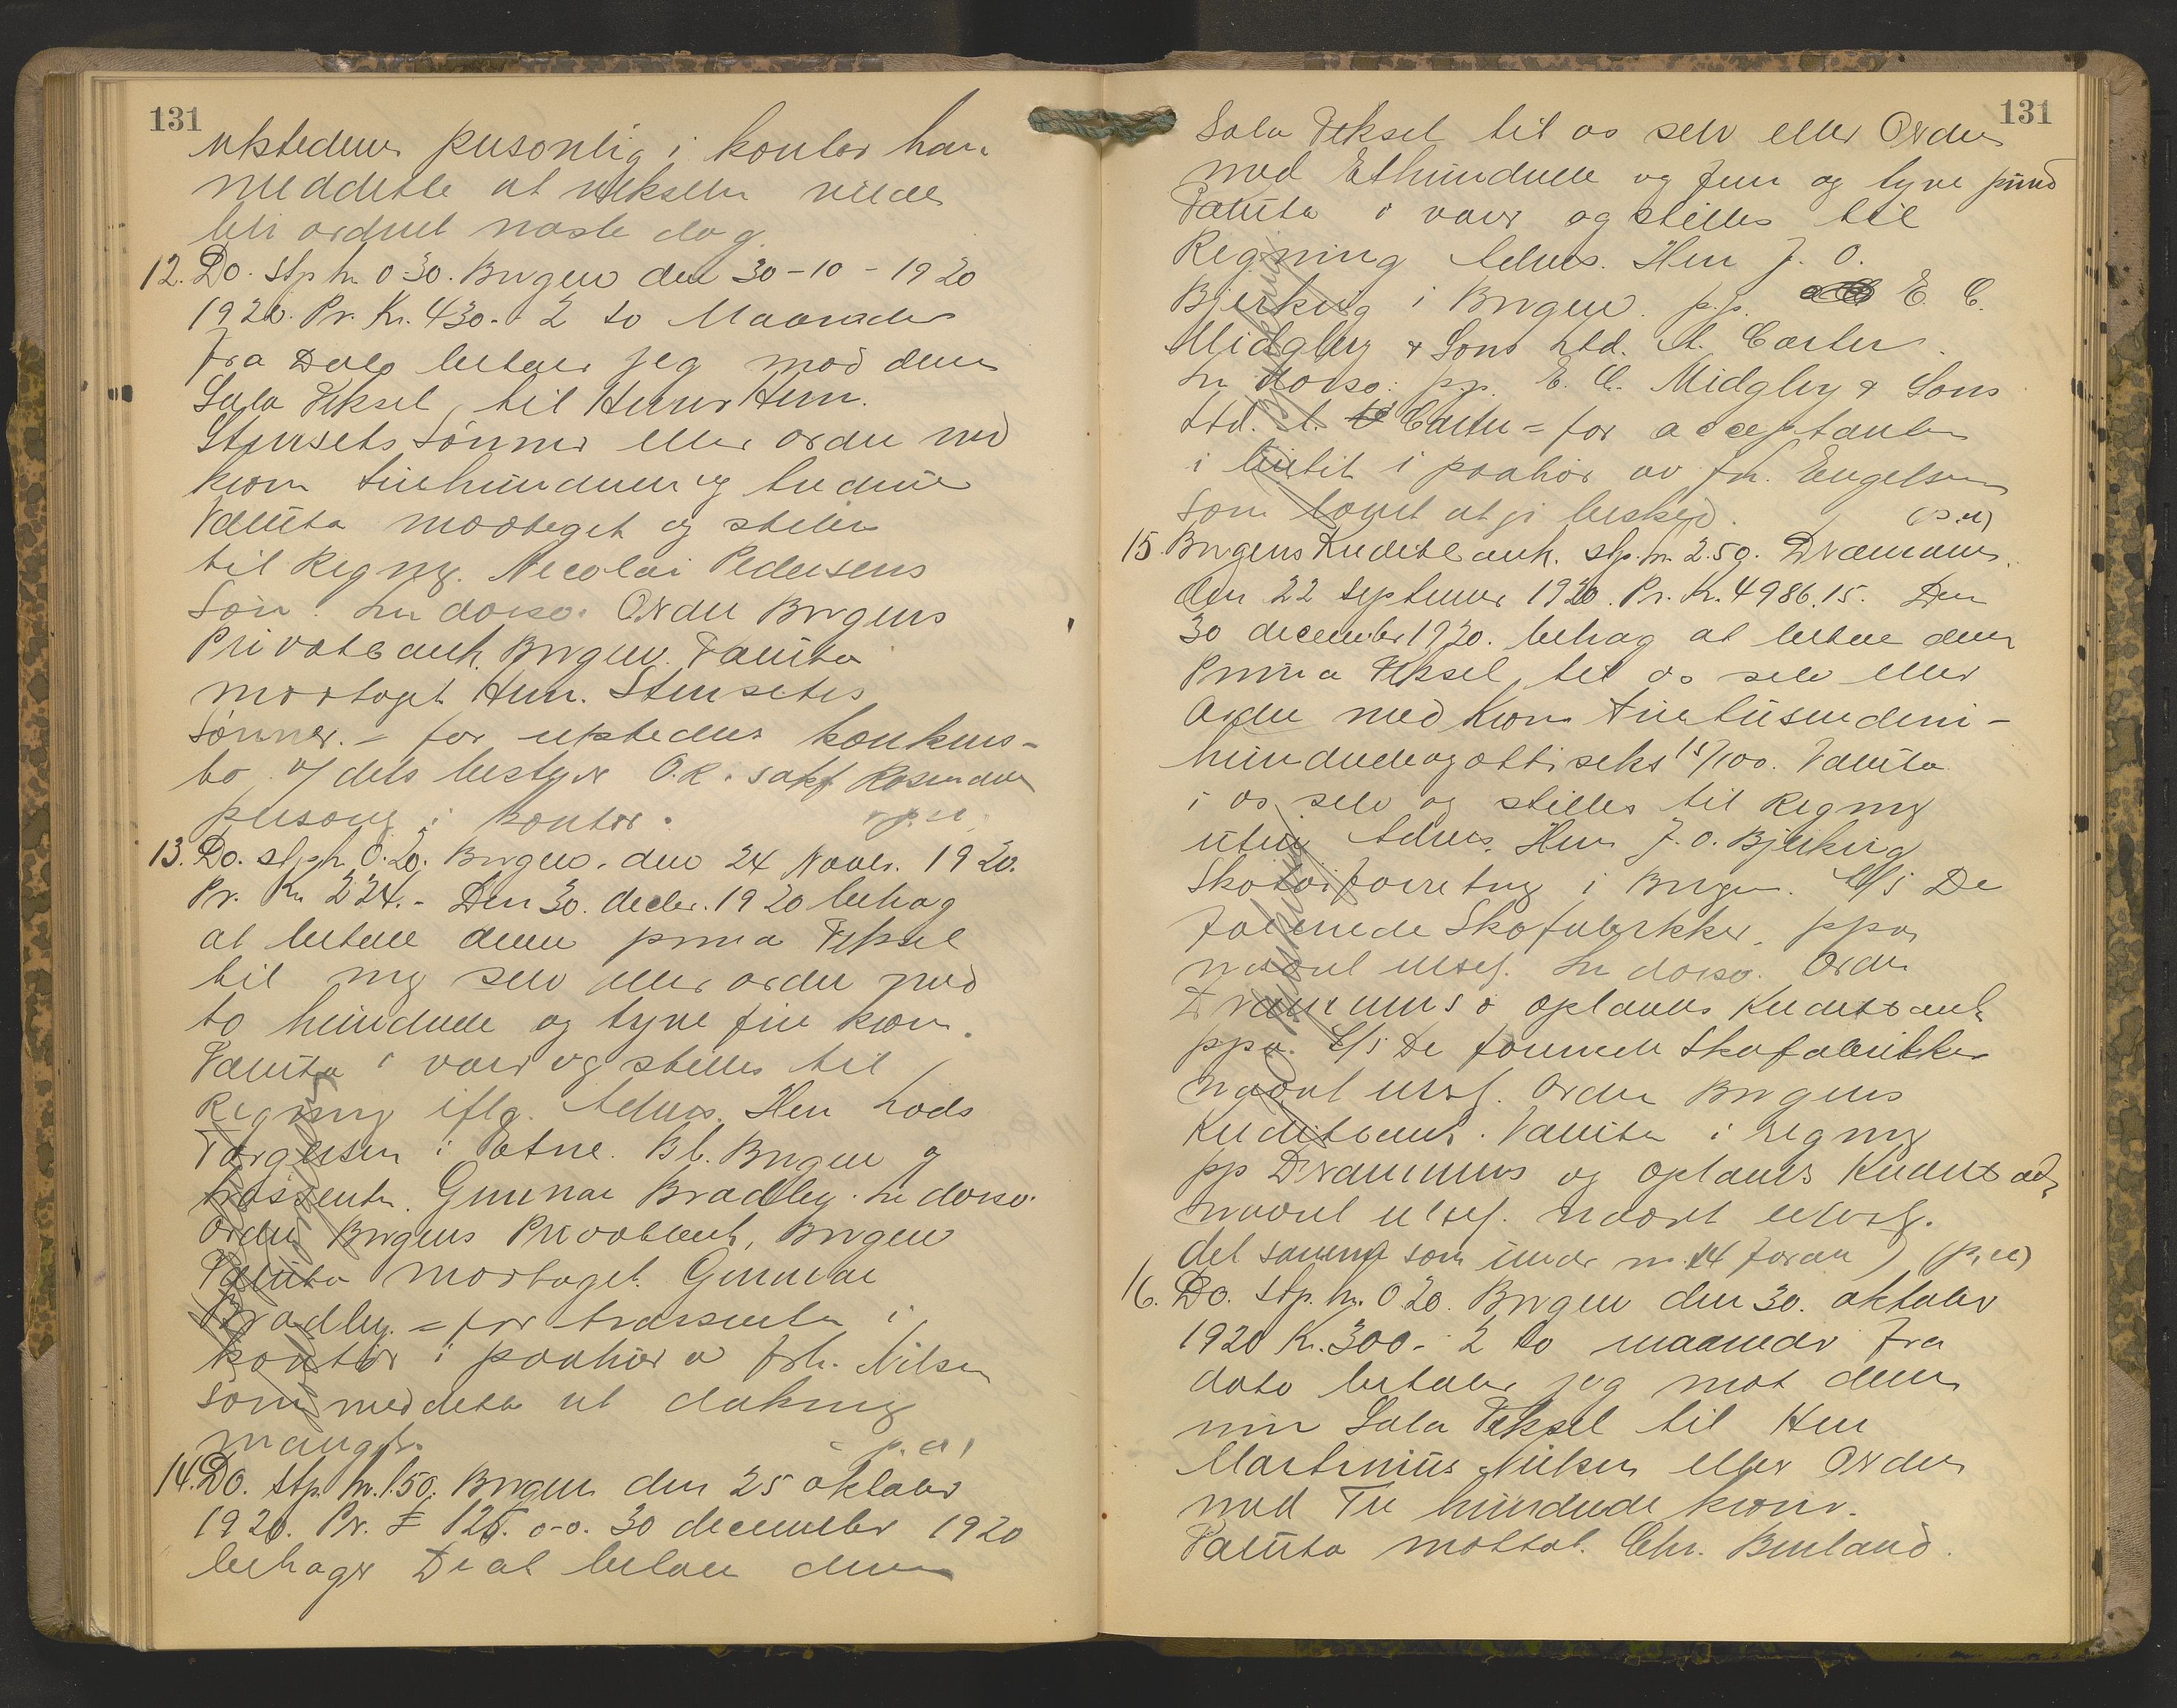 131
utstederen personlig i kontor han
meddelte at vekselen vilde
bli ordnet næste dag.
12. Do. Stp. kr. 0.30. Bergen den 30-10-1920
1920. Pr. Kr. 430.- 2 to Maaneder
fra Dato betaler jeg mod denne
Sola Veksel til Herrer Herm.
Stensets Sønner eller ordre med
kron firehundrede og tredive
Valuta modtaget og stilles
til Regng. Nicolai Pedersens
Søn. In dorso. Ordre Bergens
Privatbank, Bergen. Valuta
mottaget Herm. Stensets
Sønner. = for utsteders konkurs-
bo v/ dets bestyrer O.R. sakf.
personl. i kontor. p.u.
13. Do. stp. kr. 0.20. Bergen. den 24 Novbr. 1920.
Pr. Kr 224.- Den 30. decbr. 1920 behag
at betale denne prima Veksel
til mig selv eller ordre med
to hundrede og tyve fire kron.
Valuta i varer og stilles til
Regning iflg. Advis. Herr Lods
Torgersen i Etne. Bt. Bergen
trassenten. Gunnar Bradley. In dorso.
Ordre Bergens Privatbank, Bergen
Valuta mottaget. Gunnar
Bradley. = for trassenten i
kontor i paahør av frk. Nilsen
som meddelte at dækning
manglet. p.u.
14. Do. stp. kr. 1.50. Bergen den 25 oktober
1920. Pr. £ 125. 0-0. 30 december 1920
behager De at betale denne
131
Sola Veksel til os selv eller Ordre
med Ethundrede og fem og tyve pund
Valuta i varer og stilles til
Regning Advis. Herr J. O.
Bjerkvig i Bergen. p.p. E. C.
Midgley & Sons Ltd. A. Carter.
In dorso: pp. E. C. Midgley & Sons
Ltd. A. Carter = for acceptanten
i butik i paahør av frk. Engelsen
som lovet at gi beskjed. (p.u)
15. Bergens Kreditbank. stp. kr. 2.50. Drammen.
den 22 September 1920. Pr. Kr. 4986.15. Den
30 december 1920. behag at betale denne
Prima Veksel til os selv eller
Ordre med Kron firetusendeni-
hundredeogottiseks 15/100. Valuta
i os selv og stilles til Regning
uten Advis. Herr J. O. Bjerkvig
Skotøiforretng i Bergen. A/S De
forenede Skofabrikker. ppa
navnl ulæsel. In dorso. Ordre
Drammens & oplands Kreditbank
ppa. A/S De forenede Skofabrikker
navnl ulæsl. Ordre Bergens
Kreditbank. Valuta i regning
pp Drammens og oplands Kreditbank
navnl ulæsel. navnl ulæsl.
det samme som under nr. 14 foran) (p.u)
16. Do. Stp. kr. 0.20. Bergen den 30. oktober
1920 Kr. 300.- 2 to maaneder fra
dato betaler jeg mot denne
min Sola Veksel til Herr
Martinius eller Ordre
med Tre hundrede kroner.
Valuta mottat. Chr. Birkland.